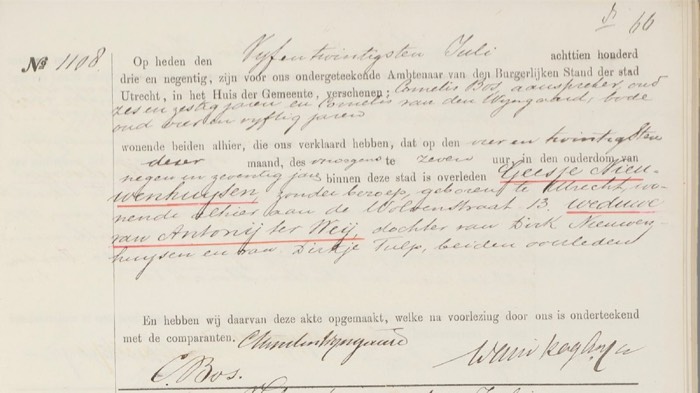 66
No 1108
Op heden den Vijfentwintigsten Juli achttien honderd
drie en negentig, zijn voor ons ondergeteekende Ambtenaar van den Burgerlijken Stand der stad
Utrecht, in het Huis der Gemeente, verschenen; Cornelis Bos, aanspreker, oud
zes en zestig jaren en Cornelis van den Wijngaard, bode
oud vier en vijftig jaren
wonende beiden alhier, die ons verklaard hebben, dat op den vier en twintigsten
dezer maand, des morgens te zeven uur, in den ouderdom van
negen en zeventig jare binnen deze stad is overleden Geesje Nieu-
wenhuijsen, zonder beroep, geboren te Utrecht, wo-
nende alhier aan de Wolvenstraat 13 weduwe
van Antonij ter Weij, dochter van Dirk Nieuwen-
huijsen en van Dirkje Tulp, beiden overleden
En hebben wij daarvan deze akte opgemaakt, welke na voorlezing door ons is onderteekend
met de comparanten.
C. Bos.